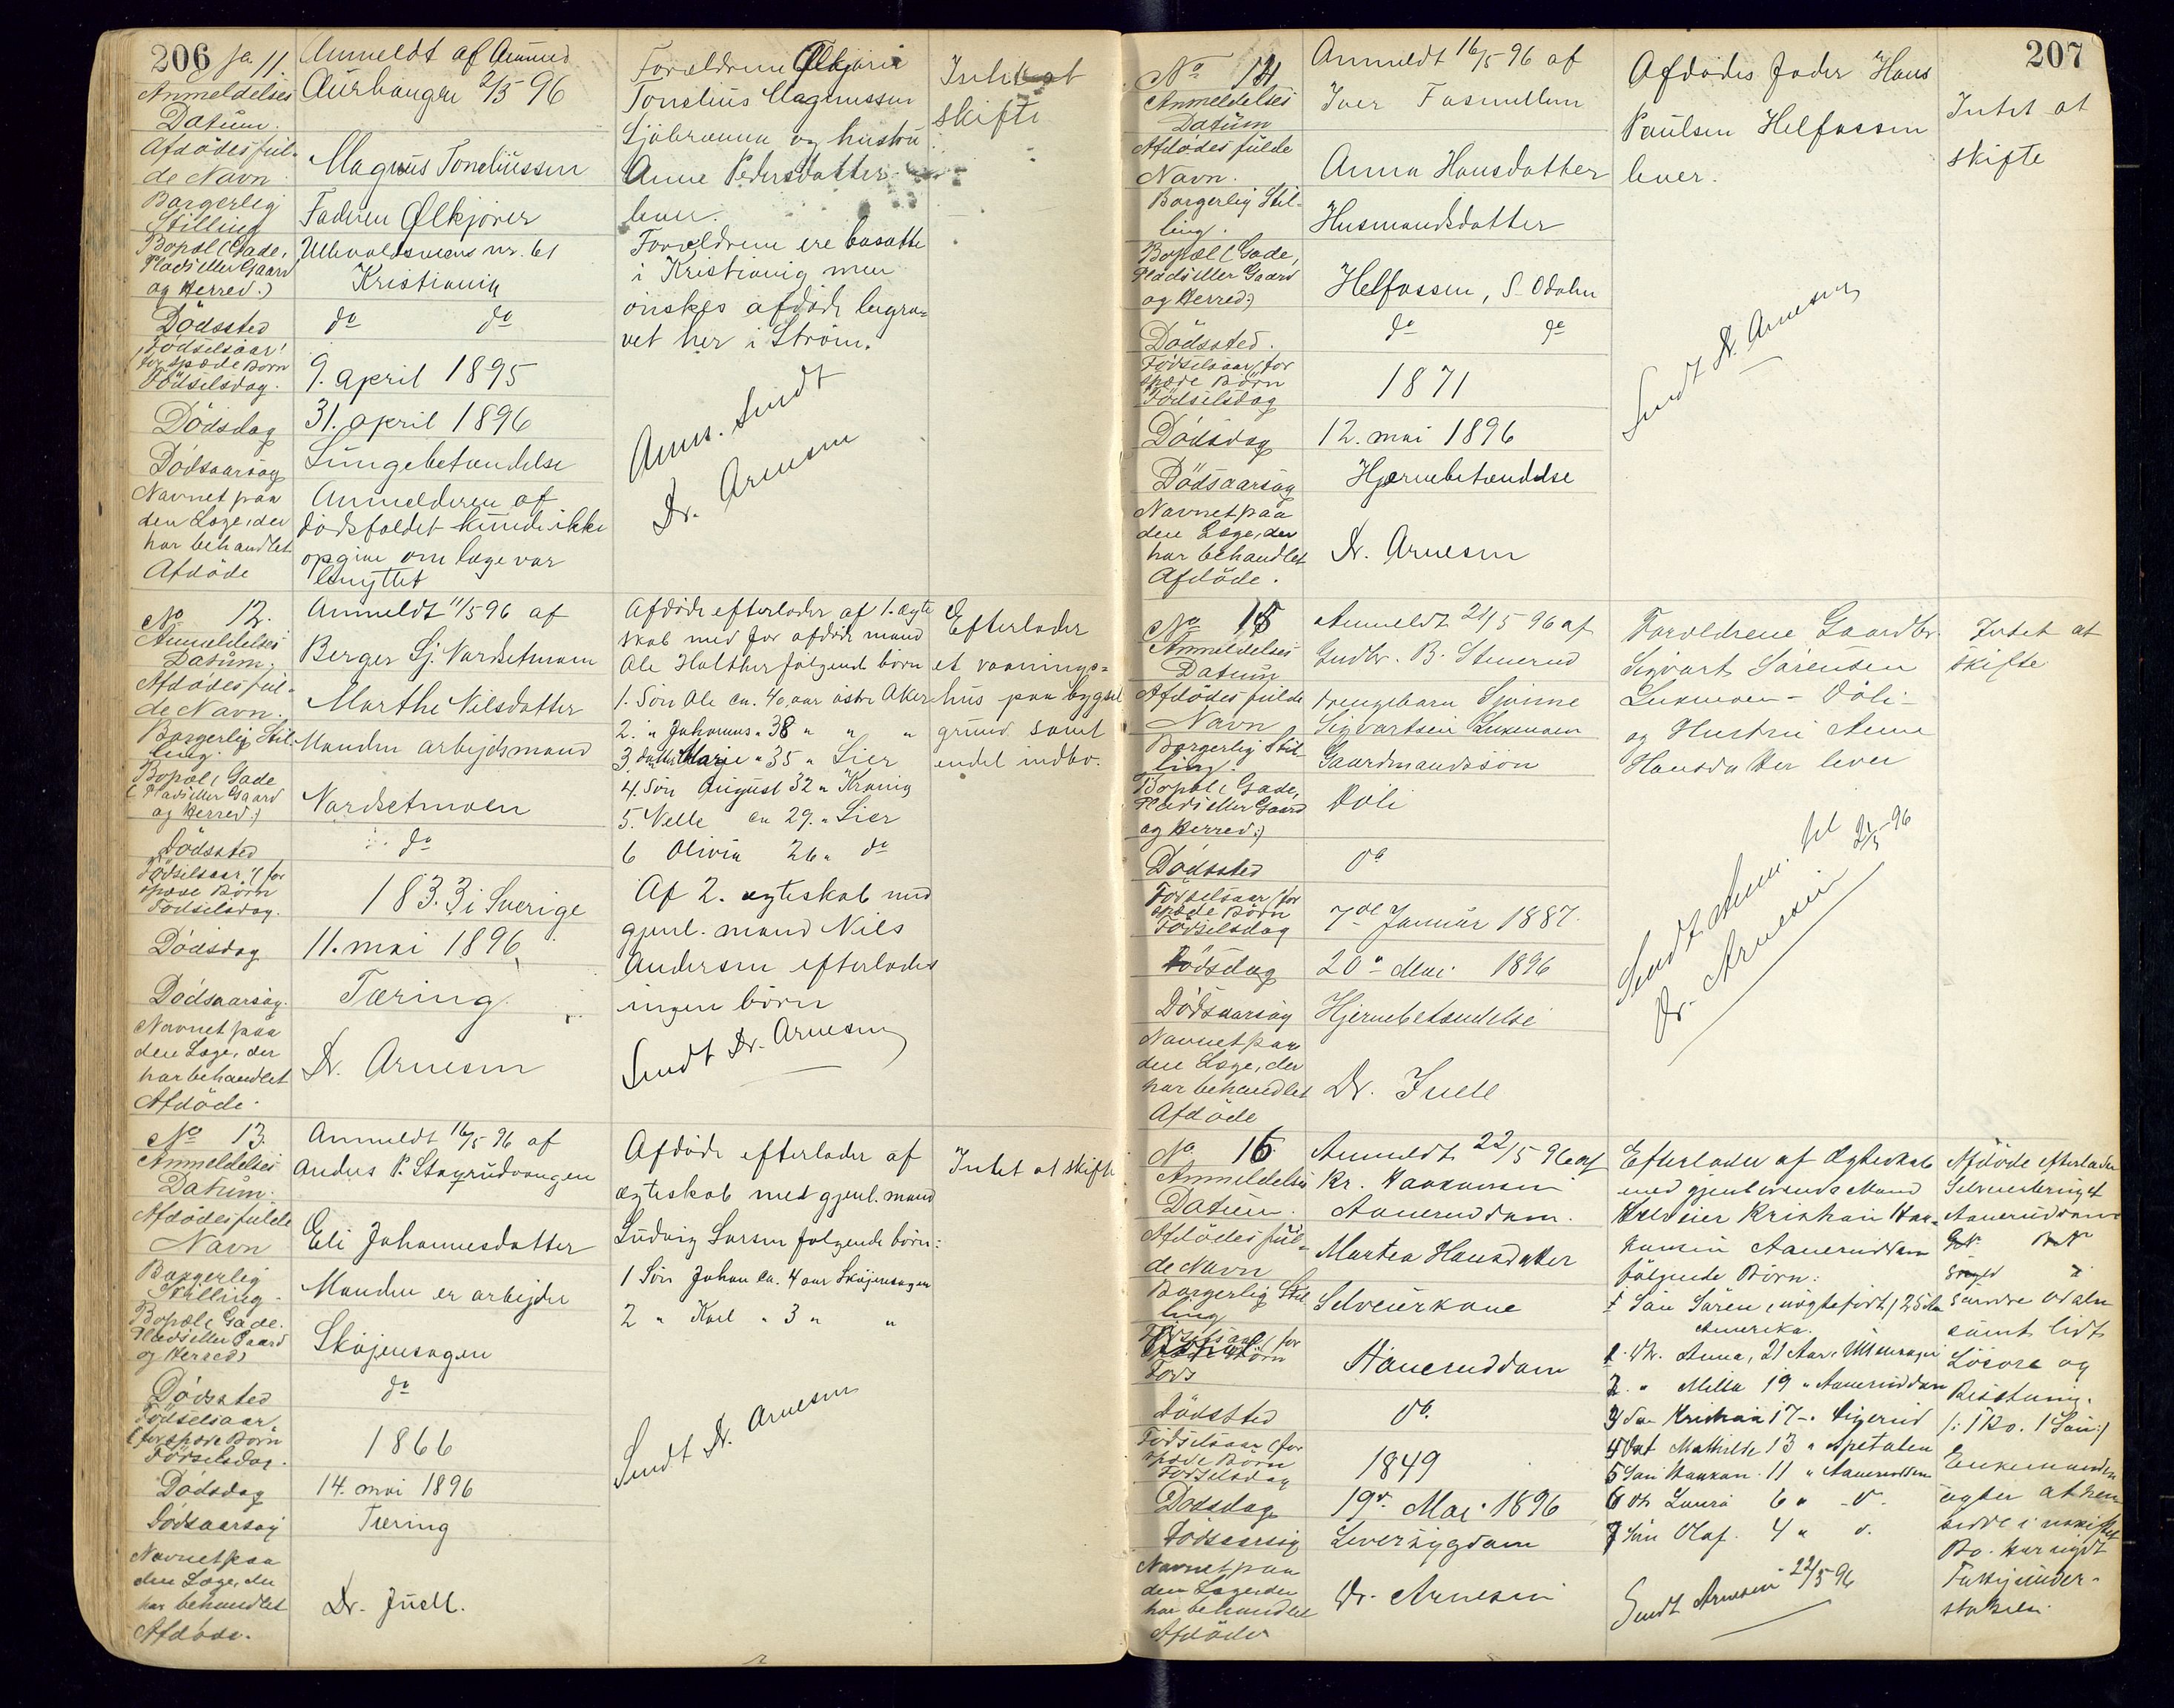 206
No. 11.
Anmeldelses
Datum.
Anmeldt af Amund
Aurhaugen 2/5 96
Afdödes ful-
de Navn.
Magnus Toneliussen
Borgerlig
Stilling
Faderen Ölkjörer
Bopæl (Gade,
Plads eller Gaard
og Herred.)
Ullevoldsveiens nr. 61
Kristiania
Dödssted
do do
Födselsaar
for spæde Börn
Födselsdag.
9. april 1895
Dödsdag
31. april 1896
Dödsaarsag
Lungebetændelse
Navnet paa
den Læge, der
har behandlet
Afdöde
Anmelderen af
dödsfaldet kunde ikke
opgive om læge var
benyttet
Forældrene Ölkjörer
Tonelius Magnussen
og hustru
Anne Pedersdatter
lever.
Forældrene ere bosatte
i Kristiania men
önskes afdöde begra-
vet her i Ström.
Anm. Sendt
Dr. Arnesen
Intet at
skifte
No 12.
Anmeldelses
Datum.
Anmeldt 11/5 96 af
Berger Sj. Vardsetmoen
Afdödes ful-
de Navn.
Marthe Nilsdatter
Borgerlig Stil-
ling.
Manden arbejdsmand
Bopæl (Gade
Plads eller Gaard
og Herred.)
Vardsetmoen
Dödssted
do
Födselsaar (for
spæde Börn
Födselsdag.
1833 i Sverige
Dödsdag
11. mai 1896
Dödsaarsag.
Tæring
Navnet paa
den Læge, der
har behandlet
Afdöde.
Dr. Arnesen
Afdöde efterlader af 1. ægte
skab med för afdöde mand
Ole Halther fölgende börn
1. Sön Ole ca. 40 aar östre Aker
2. " Johannes " 38 " " "
3. datter Marie " 35 " Lier
4. Sön August 32 " Krania
5. Nelle ca 29. " Lier
6 Olivia 26 " do
Af 2. ægteskab med
gjenl. mand Nils
Andersen efterlades
ingen börn
Sendt Dr. Arnesen
Efterlader
et vaanings-
hus paa bygsel
grund samt
endel indbo.
No 13.
Anmeldelses
Datum.
Anmeldt 16/5 96 af
Anders P. Stagrudvangen
Afdödes fulde
Navn
Eli Johannesdatter
Borgerlig
Stilling.
Manden er arbejder
Bopæl (Gade.
Plads eller Gaard
og Herred)
Sköjensagen
Dödssted
do
Födselsaar.
(for spæde Börn
Födselsdag.
1866
Dödsdag
14. mai 1896
Dödsaarsag
Tæring
Navnet paa
den Læge, der
har behandlet
Afdöde.
Dr. Juell.
Afdöde efterlader af
ægteskab med gjenl. mand
Ludvig Larsen fölgende börn:
1 Sön Johan ca. 4 aar Sköjensagen
2 " Karl " 3 " "
Sendt Dr. Arnesen
Intet at skifte
207
No 14
Anmeldelses
Datum
Anmeldt 16/5 96 af
Iver
Afdödes fulde
Navn.
Anna Hansdatter
Borgerlig Stil-
ling.
Husmandsdatter
Bopæl (Gade,
Plads eller Gaard
og Herred)
Helfossen, S. Odalen
Dödssted.
do do
Födselsaar (for
spæde Börn
Födselsdag
1871
Dödsdag
12. mai 1896
Dödsaarsag
Hjernebetændelse
Navnet paa
den Læge, der
har behandlet
Afdöde.
Dr. Arnesen
Afdödes fader Hans
Paulsen Helfossen
lever.
Sendt Dr. Arnesen
Intet at
skifte
No 15
Anmeldelses
Datum
Anmeldt 21/5 96 af
Gudbr. B. Stenerud
Afdödes fulde
Navn
Drengebarn
Sigvartsen
Borgerlig Stil-
ling.
Gaardmandssön
Bopæl (Gade,
Plads eller Gaard
og Herred.)
Döli
Dödssted
Do
Födselsaar (for
spæde Börn
Födselsdag
7de Januar 1887.
Dödsdag
20de Mai 1896
Dödsaarsag
Hjernebetændelse
Navnet paa
den Læge, der
har behandlet
Afdöde
Dr. Juell
Forældrene Gaardbr.
Sigvart Sörensen
Döli
og Hustru Anne
Hansdatter lever
Sendt Anm. til
Dr. Arnesen 21/5 96
Intet at
skifte
No 16
Anmeldelses
Datum.
Anmeldt 22/5 96 af
Kr. Haakonsen
Aaneruddam.
Afdödes ful-
de Navn
Martea Hansdatter
Borgerlig Stil-
ling
Selveierkone
Aaneruddam
Dödssted
Do.
Födselsaar (for
spæde Börn
Födselsdag
1849
Dödsdag
19de Mai 1896
Dödsaarsag
Leversygdom
Navnet paa
den Læge der
har behandlet
Afdöde
Dr. Arnesen
Efterlader af Ægteskab
med gjenlevende Mand
Selveier Kristian Haa-
konsen Aaneruddam
fölgende Börn:
Sön Sören, uægtefödt, 25 Aar
Amerika.
1. Dtr. Anna, 21 Aar
2. " Milla 19 " Aaneruddam
3 Sön Kristian 17
4 Datt Mathilde 13 "
5 Sön Haakon 11 " Aaneruddam
6 Dtr Laura 6 " do.
7 Sön Olaf. 4 " do.
Sendt Arnesen 22/5 96
Afdöde efterlader
Selveierbruget
Aaneruddam
söndre Odalen
samt lidt
Lösöre og
Besætning.
(: 1 Ko. 1 Sau :)
Enkemanden
agter at hen-
sidde i uskiftet
Bo. Har nydt
Fattigunder-
stöttelse.